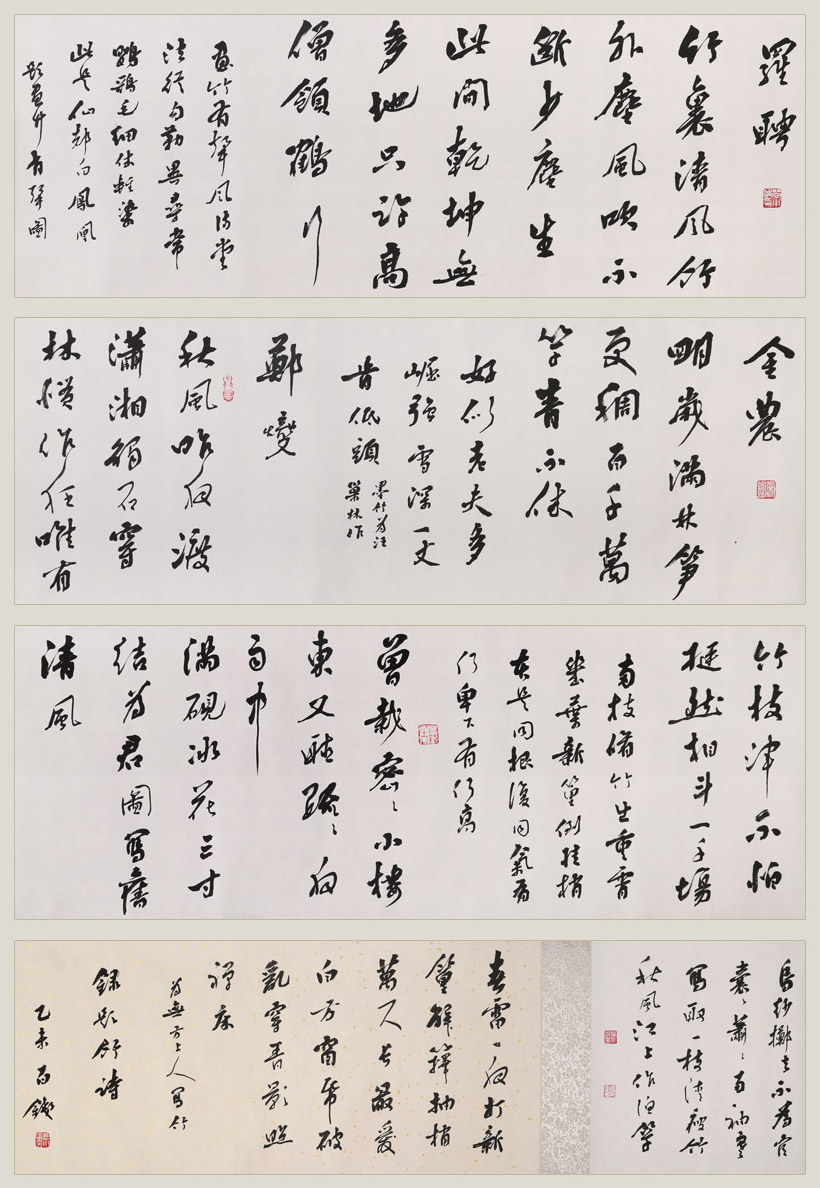 羅聘
竹裏清風竹
外塵風吹不
斷少塵生
此間乾坤無
多地只許高
僧領鶴行
畫竹有聲風滿堂
法從勾勒異尋常
毛細休輕染
此是仙郎白鳳凰
題畫竹有聲圖
金農
明歲滿林筍
更稠百千萬
竿青不休
好似老夫多
崛强雪深一丈
肯低頭
墨竹為汪
巢林作
鄭燮
秋風昨夜渡
瀟湘觸石穿
林慣作狂唯有
竹枝渾不怕
挺然相斗一千場
兩枝脩竹出重霄
幾葉新篁倒挂梢
本是同根復同氣有
何卑下有何高
曾栽密〻小樓
東又聽疏〻夜
雨中
滿硯冰花三寸
結為君圖寫舊
清風
烏紗擲去不為官
囊〻蕭〻兩袖寒
寫取一枝清瘦竹
秋風江上作漁竿
春雷一夜打新
篁解籜抽梢
萬尺長最愛
白方窗紙破
亂穿青影照
禪床
為無方上人寫竹
錄題竹詩
乙未百